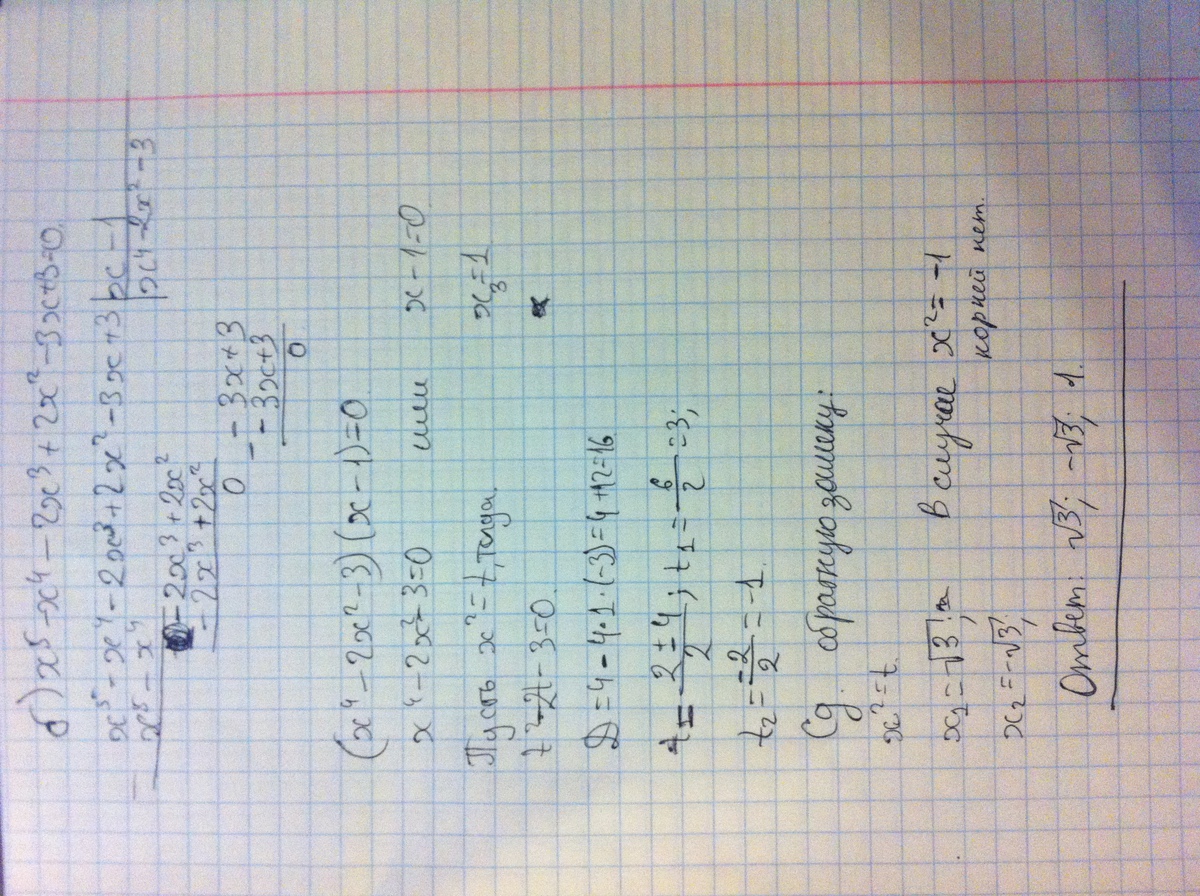 б) x⁵ - x⁴ - 2x³ + 2x² - 3x + 3 = 0.
x⁵ - x⁴ - 2x³ + 2x² - 3x + 3 | x - 1
x⁵ - x⁴ | x⁴ - 2x² - 3
- 2x³ + 2x²
- 2x³ + 2x²
0
- - 3x + 3
- 3x + 3
0
(x⁴ - 2x² - 3)(x - 1) = 0
x⁴ - 2x² - 3 = 0 или x - 1 = 0
Пусть x² = t, тогда. x₃ = 1
t² - 2t - 3 = 0.
Д = 4 - 4·1·(-3) = 4 + 12 = 16
t = (2 ± 4)/2; t₁ = 6/2 = 3;
t₂ = -2/2 = -1.
Сд. обратную замену:
x² = t.
x₁ = √3; В случае x² = -1
x₂ = -√3; корней нет.
Ответ: √3; -√3; 1.